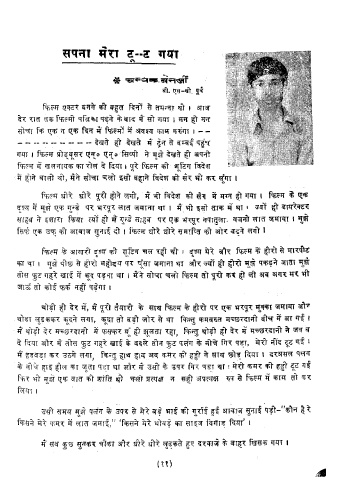 सपना मेरा टू--ट गया
बी. एस-सी. पूर्व
फिल्म एक्टर बनने की बहुत दिनों से तमन्ना थी । आज
देर रात तक फिल्मी पत्रिका पढ़ने के बाद मैं सो गया । मन ही मन
सोचा कि एक न एक दिन मैं फिल्मों में अवश्य काम करूंगा । --
देखते ही देखते मैं ट्रेन से बम्बई पहुंच
गया । फिल्म प्रोड्यूसर एन० एन० सिप्पी ने मुझे देखते ही अपनी
फिल्म में खलनायक का रोल दे दिया । पूरे फिल्म की शूटिंग विदेश
में होने वाली थी, मैंने सोचा चलो इसी बहाने विदेश की सैर भी कर लूंगा ।
फिल्म धीरे धीरे पूरी होने लगी, मैं भी विदेश की सैर में मग्न हो गया । फिल्म के एक
दृश्य में मुझे एक गुन्डे पर भरपूर लात जमाना था । मैं भी इसी ताक में था । ज्यों ही डायरेक्टर
साहब ने इशारा किया त्यों ही मैं गुन्डे साहब पर एक भरपूर वजनी लात जमाया । मुझे
सिर्फ एक उफ् की आवाज सुनाई दी । फिल्म धीरे धीरे समाप्ति की ओर बढ़ने लगी ।
फिल्म के आखरी दृश्य की शूटिंग चल रही थी । दृश्य मेरे और फिल्म के हीरो से मारपीट
का था । मुझे पीछे से हीरो महोदय पर घूंसा जमाना था और ज्यों ही हीरो मुझे पकड़ने आता मुझे
तीस फुट गहरे खाई में कूद पड़ना था । मैंने सोचा चलो फिल्म तो पूरी कर ही ली अब अगर मर भी
जाऊं तो कोई फर्क नहीं पड़ेगा ।
थोड़ी ही देर में, मैं पूरी तैयारी के साथ फिल्म के हीरो पर एक भरपूर मुक्का जमाया और
थोड़ा लुड़ककर कूदने लगा, कूदा तो बड़ी जोर से था किन्तु कमबख्त मच्छरदानी बीच में आ गई ।
मैं थोड़ी देर मच्छरदानी में फंसकर यूं ही झूलता रहा, किन्तु थोड़ी ही देर में मच्छरदानी ने जवाब
दे दिया और मैं तीस फुट गहरे खाई के बदले तीन फुट पलंग के नीचे गिर पड़ा, मेरी नींद टूट गई ।
मैं हड़बड़ा कर उठने लगा, किन्तु हाय हाय अब कमर की हड्डी ने साथ छोड़ दिया । दरअसल पलंग
के नीचे हाई हील का जूता पड़ा था और मैं उसी के ऊपर गिर पड़ा था । मेरी कमर की हड्डी टूट गई
फिर भी मुझे एक बात की शांति थी चलो प्रत्यक्ष न सही अप्रत्यक्ष रूप से फिल्म में काम तो कर
लिया ।
उसी समय मुझे पलंग के ऊपर से मेरे बड़े भाई की गुर्राई हुई आवाज सुनाई पड़ी-"कौन है रे
किसने मेरे कमर में लात जमाई," 'किसने मेरे थोबड़े का साइज बिगाड़ दिया' ।
मैं सब कुछ सुनकर चौंका और धीरे धीरे लुढ़कते हुए दरवाजे के बाहर खिसक गया ।
(११)